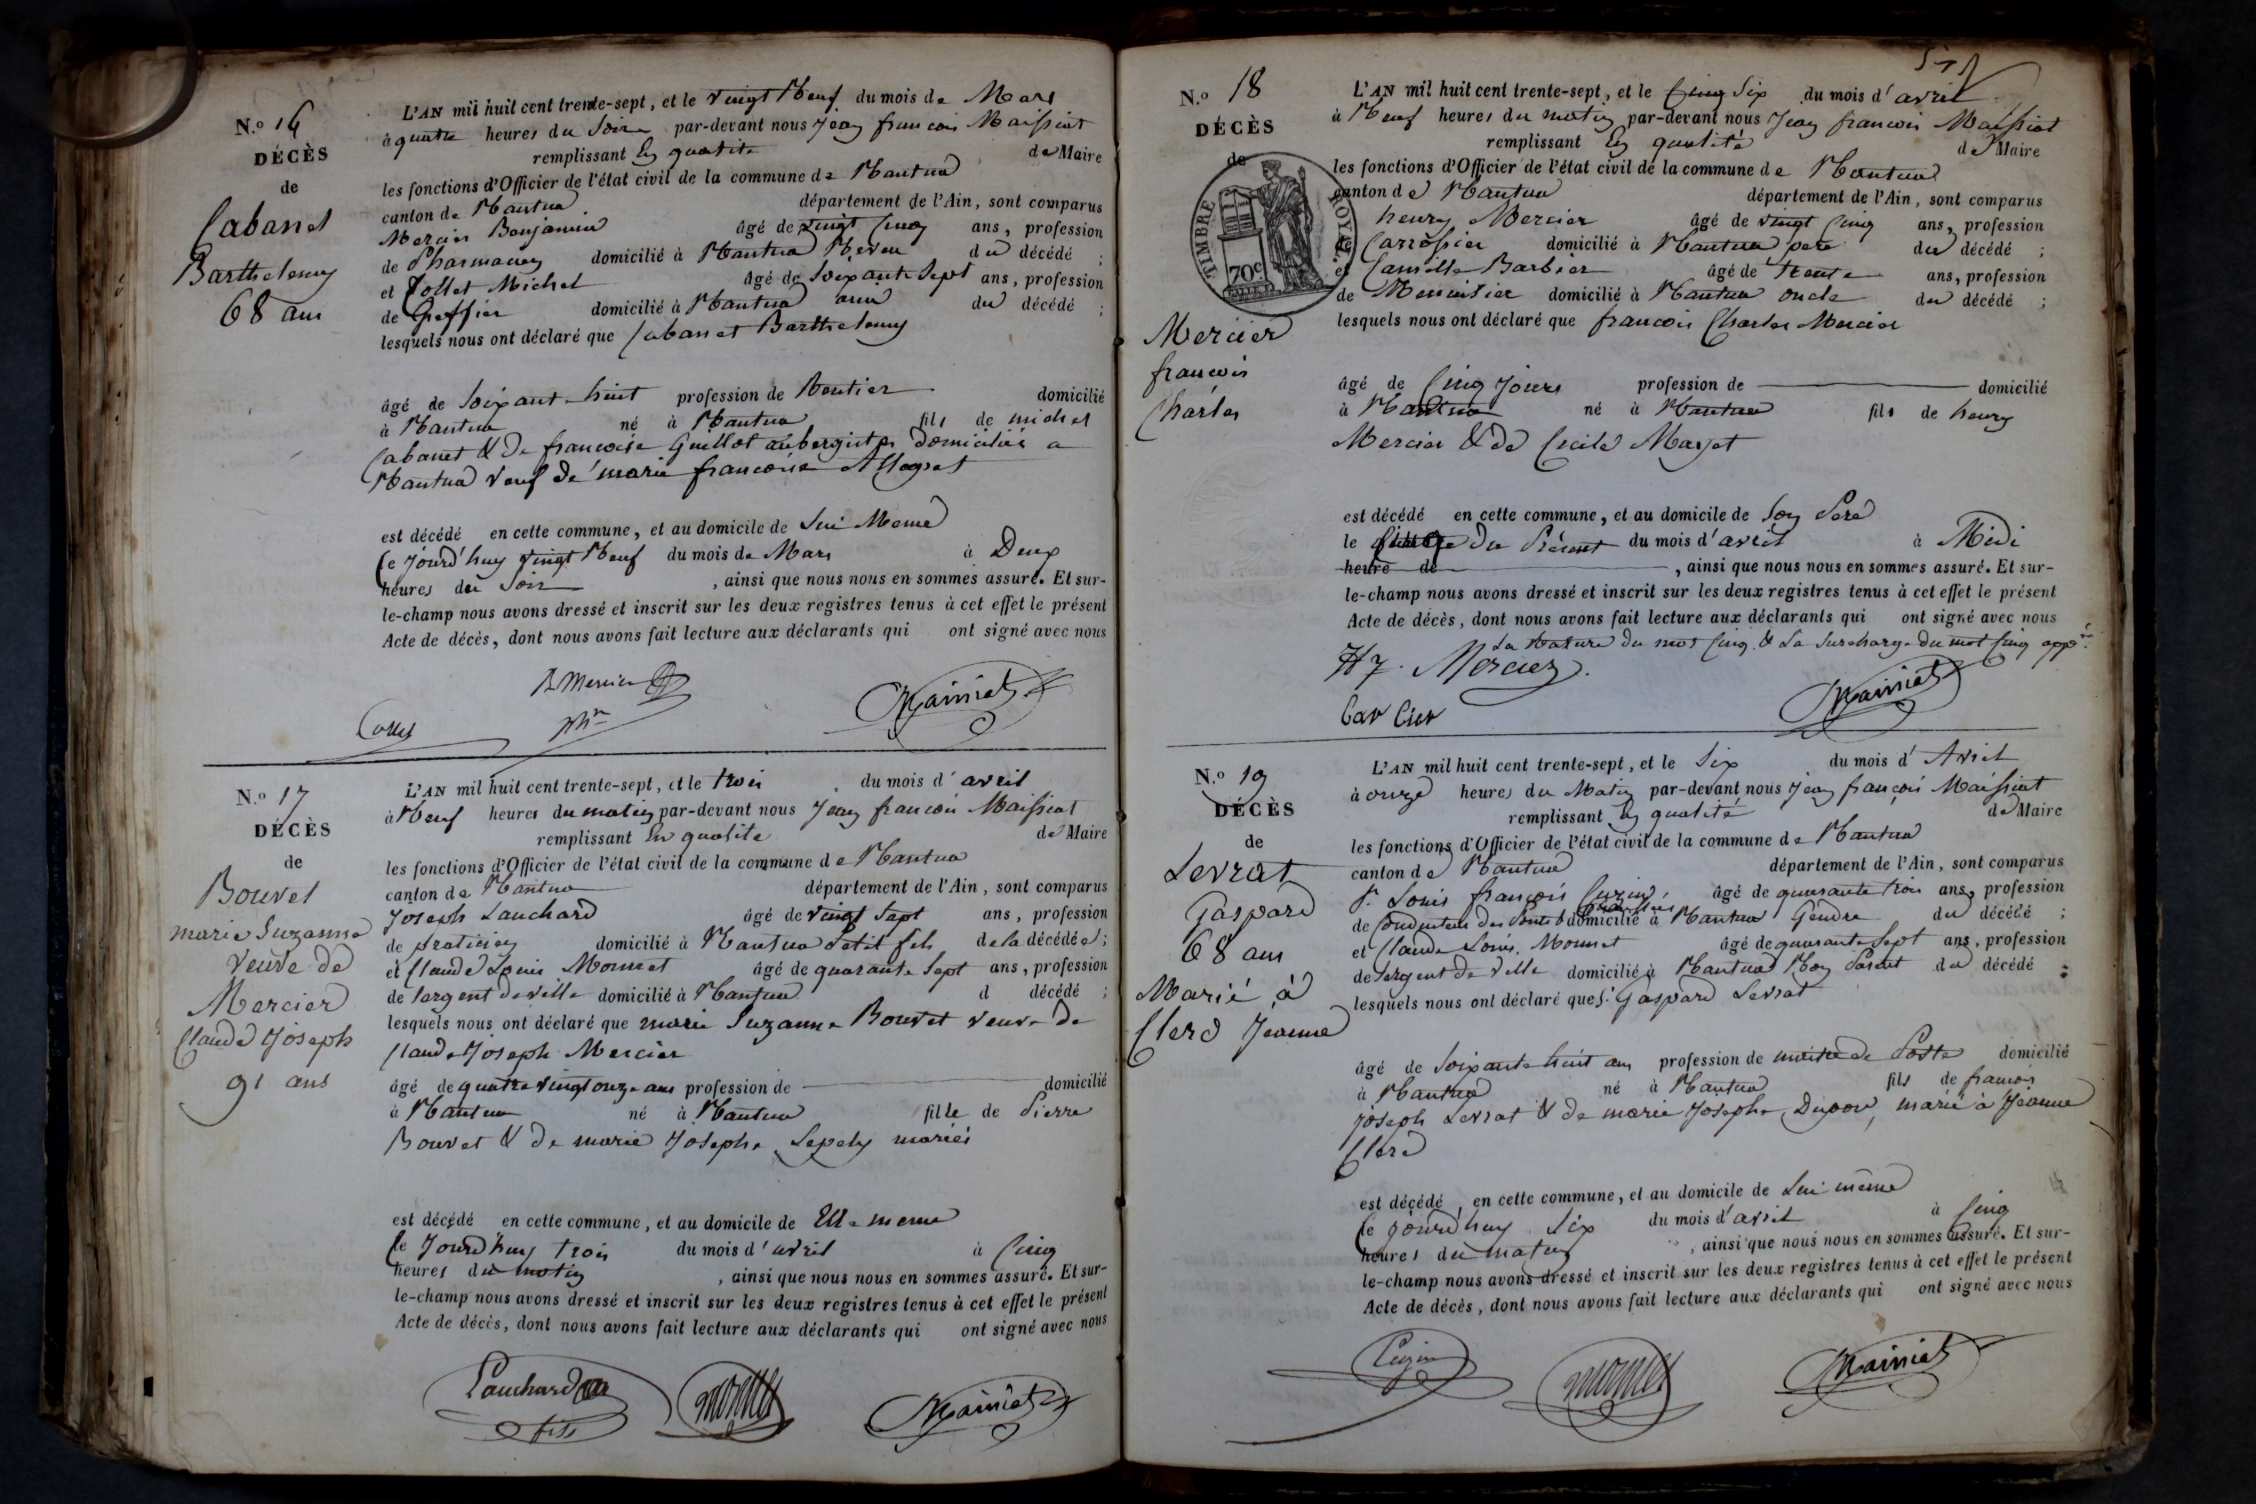 N.o 16
DÉCÈS
de
Cabanet
Barthelemy
68 ans
L'AN mil huit cent trente-sept, et le vingt Neuf du mois de Mars
à quatre heures du Soir par-devant nous Jean francois Maissiat
remplissant En qualité de Maire
les fonctions d'Officier de l'état civil de la commune de Nantua
canton de Nantua département de l'Ain, sont comparus
Mercier Benjamin âgé de vingt Cinq ans, profession
de Pharmacien domicilié à Nantua Neveu du décédé ;
et Collet Michel âgé de Soixante Sept ans, profession
de Greffier domicilié à Nantua ami du décédé ;
lesquels nous ont déclaré que Cabanet Barthelemy
âgé de Soixante huit profession de Rentier domicilié
à Nantua né à Nantua fils de michel
Cabanet & de francoise Guillot aubergistes domiciliés a
Nantua veuf de marie francoise Allegret
est décédé en cette commune, et au domicile de Lui Meme
Ce Jourd'huy vingt Neuf du mois de Mars à Deux
heures du Soir , ainsi que nous nous en sommes assuré. Et sur-
le-champ nous avons dressé et inscrit sur les deux registres tenus à cet effet le présent
Acte de décès, dont nous avons fait lecture aux déclarants qui ont signé avec nous
B Mercier
phn
Collet
Maissiat
N.o 17
DÉCÈS
de
Bouvet
marie Suzanne
veuve de
Mercier
Claude Joseph
91 ans
L'AN mil huit cent trente-sept, et le trois du mois d'avril
à Neuf heures du matin par-devant nous Jean francois Maissiat
remplissant En qualité de Maire
les fonctions d'Officier de l'état civil de la commune de Nantua
canton de Nantua département de l'Ain, sont comparus
Joseph Lauchard âgé de vingt Sept ans, profession
de praticien domicilié à Nantua Petit fils de la décédée ;
et Claude Louis Monnet âgé de quarante Sept ans, profession
de Sergent de ville domicilié à Nantua d décédé ;
lesquels nous ont déclaré que marie Suzanne Bouvet veuve de
Claude Joseph Mercier
âgé de quatre vingt onze ans profession de domicilié
à Nantua né à Nantua fille de Pierre
Bouvet & de marie Josephe mariés
est décédé en cette commune, et au domicile de Elle meme
Ce Jourd'huy trois du mois d'avril à Cinq
heures du matin , ainsi que nous nous en sommes assuré. Et sur-
le-champ nous avons dressé et inscrit sur les deux registres tenus à cet effet le présent
Acte de décès, dont nous avons fait lecture aux déclarants qui ont signé avec nous
Lauchard
fils
Monnet
Maissiat
N.o 18
DÉCÈS
de
TIMBRE ROYAL
70c
Mercier
francois
Charles
L'AN mil huit cent trente-sept, et le Cinq Six du mois d'avril
à Neuf heures du matin par-devant nous Jean francois Maissiat
remplissant En qualité de Maire
les fonctions d'Officier de l'état civil de la commune de Nantua
canton de Nantua département de l'Ain, sont comparus
henry Mercier âgé de vingt Cinq ans, profession
de Carrossier domicilié à Nantua pere du décédé ;
et Camille Barbier âgé de trente ans, profession
de Menuisier domicilié à Nantua oncle du décédé ;
lesquels nous ont déclaré que francois Charles Mercier
âgé de Cinq Jours profession de domicilié
à Nantua né à Nantua fils de henry
Mercier & de Cecile Mayet
est décédé en cette commune, et au domicile de Son Pere
le du Présent du mois d'avril à Midi
heure de , ainsi que nous nous en sommes assuré. Et sur-
le-champ nous avons dressé et inscrit sur les deux registres tenus à cet effet le présent
Acte de décès, dont nous avons fait lecture aux déclarants qui ont signé avec nous
La Rature du mot Cinq & La Surcharge du mot Cinq appé
Hy. Mercier.
Maissiat
N.o 19
DÉCÈS
de
Levrat
Gaspard
68 ans
Marié à
Clerc Jeanne
L'AN mil huit cent trente-sept, et le Six du mois d'Avril
à onze heures du Matin par-devant nous Jean françois Maissiat
remplissant En qualité de Maire
les fonctions d'Officier de l'état civil de la commune de Nantua
canton de Nantua département de l'Ain, sont comparus
Sr. Louis françois Cuzin âgé de quarante trois ans, profession
de Conducteur des Ponts & chaussées domicilié à Nantua Gendre du décédé ;
et Claude Louis Monnet âgé de quarante Sept ans, profession
de Sergent de ville domicilié à Nantua Non Parent du décédé ;
lesquels nous ont déclaré que Sr. Gaspard Levrat
âgé de Soixante huit ans profession de maître de Poste domicilié
à Nantua né à Nantua fils de francois
joseph Levrat & de marie Josephe marié à Jeanne
Clerc
est décédé en cette commune, et au domicile de Lui même
Ce jourd'huy Six du mois d'avril à Cinq
heures du matin , ainsi que nous nous en sommes assuré. Et sur-
le-champ nous avons dressé et inscrit sur les deux registres tenus à cet effet le présent
Acte de décès, dont nous avons fait lecture aux déclarants qui ont signé avec nous
Cuzin
Monnet
Maissiat